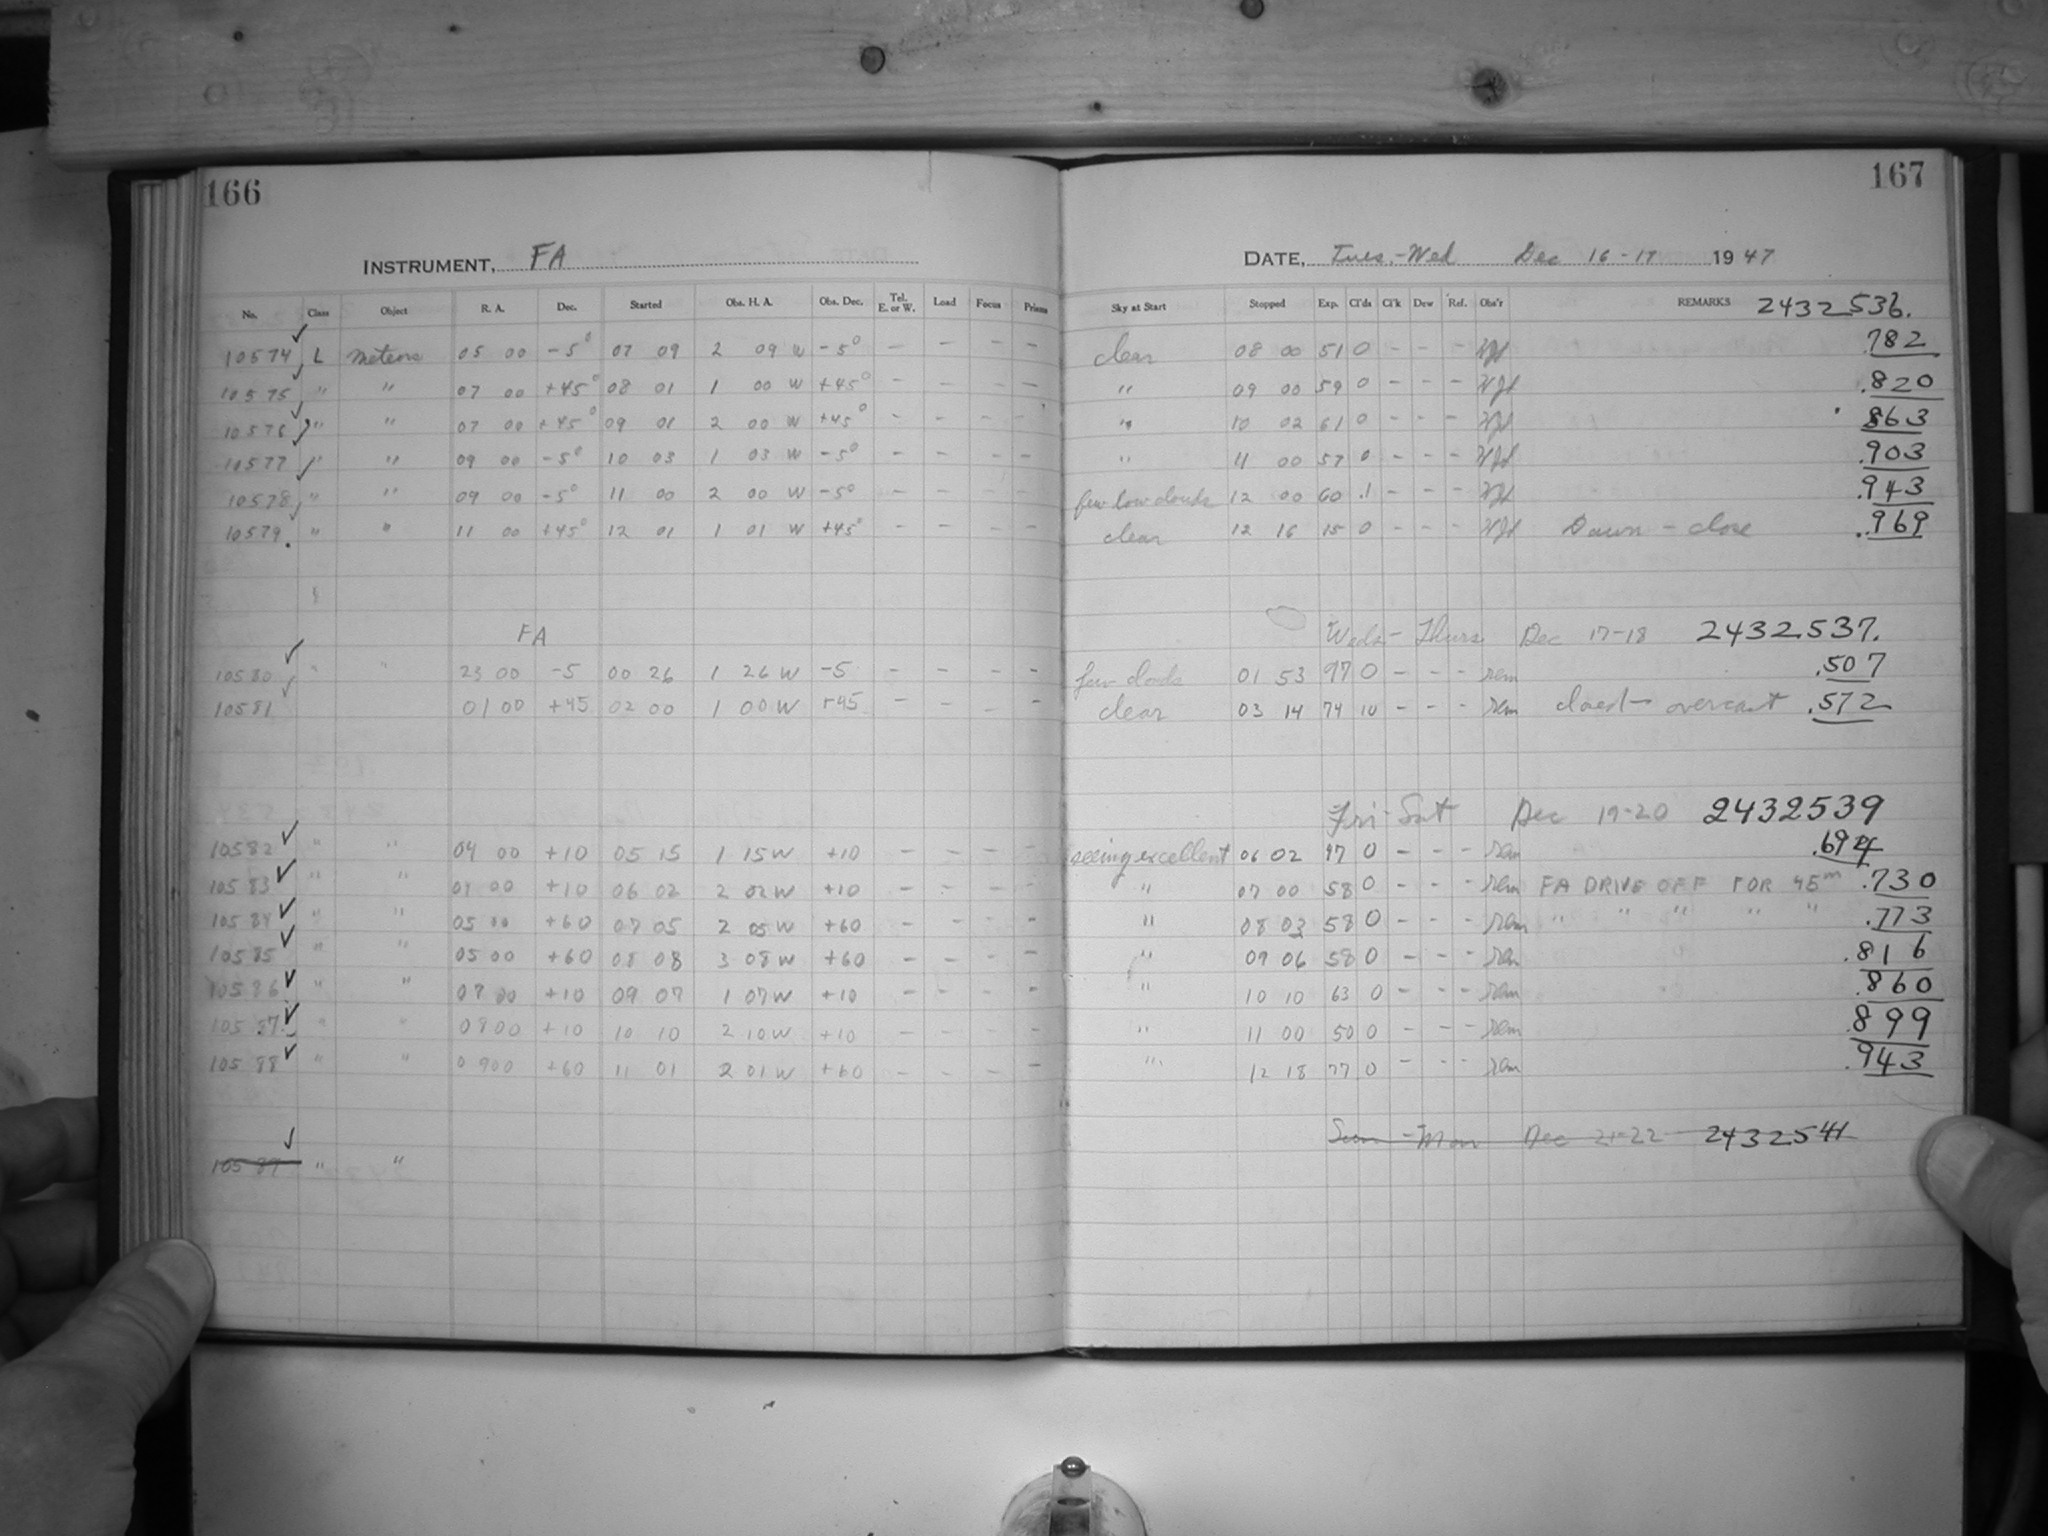 166
167
INSTRUMENT, FA
DATE, Tues.-Wed Dec 16-17 1947
No. Class Object R. A. Dec. Started Obs. H. A. Obs. Dec. Tel. E. or W. Load Focus Prisms Sky at Start Stopped Exp. Cl'ds Cl'k Dew Ref. Obs'r REMARKS 2432536.
10574 L meteors 05 00 -5° 07 09 2 09 W -5° - - - - clear 08 00 51 0 - - - .782
10575 " " 07 00 +45° 08 01 1 00 W +45° - - - - " 09 00 59 0 - - - .820
10576 " " 07 00 +45° 09 01 2 00 W +45° - - - - " 10 02 61 0 - - - .863
10577 " " 09 00 -5° 10 03 1 03 W -5° - - - - " 11 00 57 0 - - - .903
10578 " " 09 00 -5° 11 00 2 00 W -5° - - - - few low clouds 12 00 60 .1 - - - .943
10579 " " 11 00 +45° 12 01 1 01 W +45° - - - - clear 12 16 15 0 - - - Dawn - close .969
FA Weds - Thurs Dec 17-18 2432537.
10580 " " 23 00 -5 00 26 1 26 W -5 - - - - few clouds 01 53 97 0 - - - rem .507
10581 01 00 +45 02 00 1 00 W +45 - - - - clear 03 14 74 10 - - - rem closed - overcast .572
Fri - Sat Dec 19-20 2432539
10582 " " 04 00 +10 05 15 1 15 W +10 - - - - seeing excellent 06 02 97 0 - - - rem .694
10583 " " 04 00 +10 06 02 2 02 W +10 - - - - " 07 00 58 0 - - - rem FA DRIVE OFF FOR 45m .730
10584 " " 05 00 +60 07 05 2 05 W +60 - - - - " 08 03 58 0 - - - rem " " " " " .773
10585 " " 05 00 +60 08 08 3 08 W +60 - - - - " 09 06 58 0 - - - rem .816
10586 " " 07 00 +10 09 07 1 07 W +10 - - - - " 10 10 63 0 - - - rem .860
10587 " " 0800 +10 10 10 2 10 W +10 - - - - " 11 00 50 0 - - - rem .899
10588 " " 0900 +60 11 01 2 01 W +60 - - - - " 12 18 77 0 - - - rem .943
Sun - Mon Dec 21-22 2432541
10589 " "